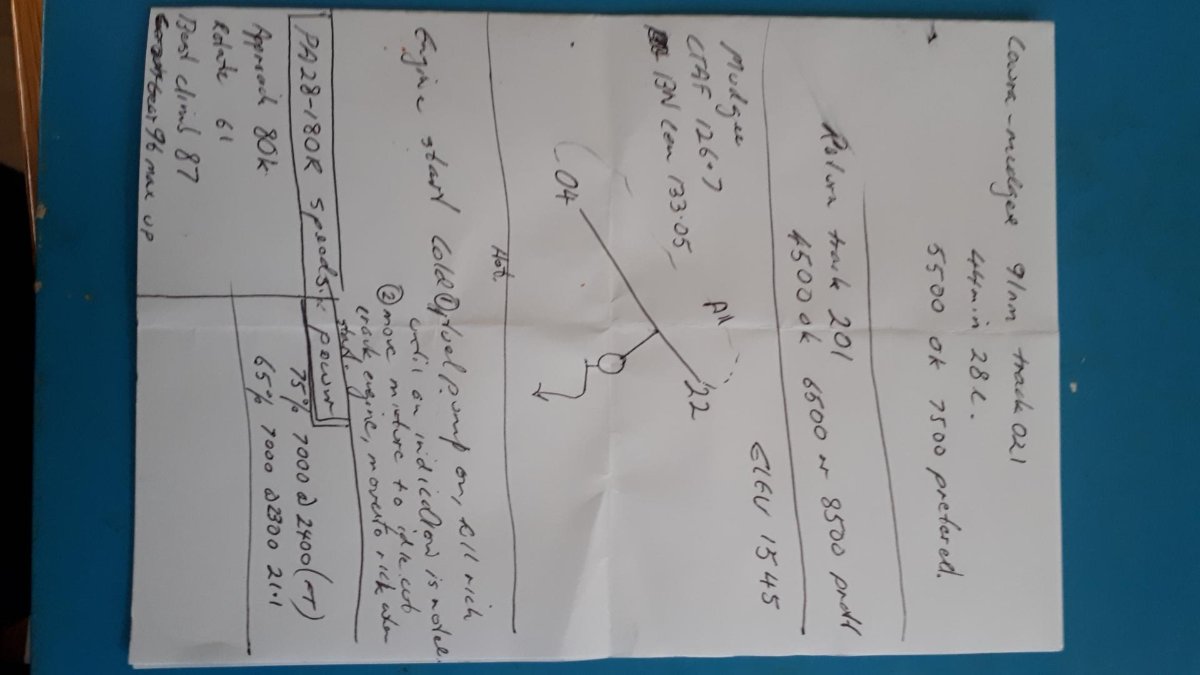 Cowra - mudgee 91nm track 021
44min 28L.
5500 ok 7500 prefered.
Return track 201 6500 or 8500 preff
4500 ok
Mudgee
CTAF 126.7
BN Cen 133.05
ELEV 1545
All
04
22
Hot.
Engine start Cold ① fuel pump on, full rich
until an indication is noted
② move mixture to idle cut
crank engine, move to rich when
start.
PA28-180R speeds & power
Approach 80k
Rotate 61
Best climb 87
gear 96 max up
75% 7000 @ 2400 (FT)
65% 7000 @ 2300 21.1